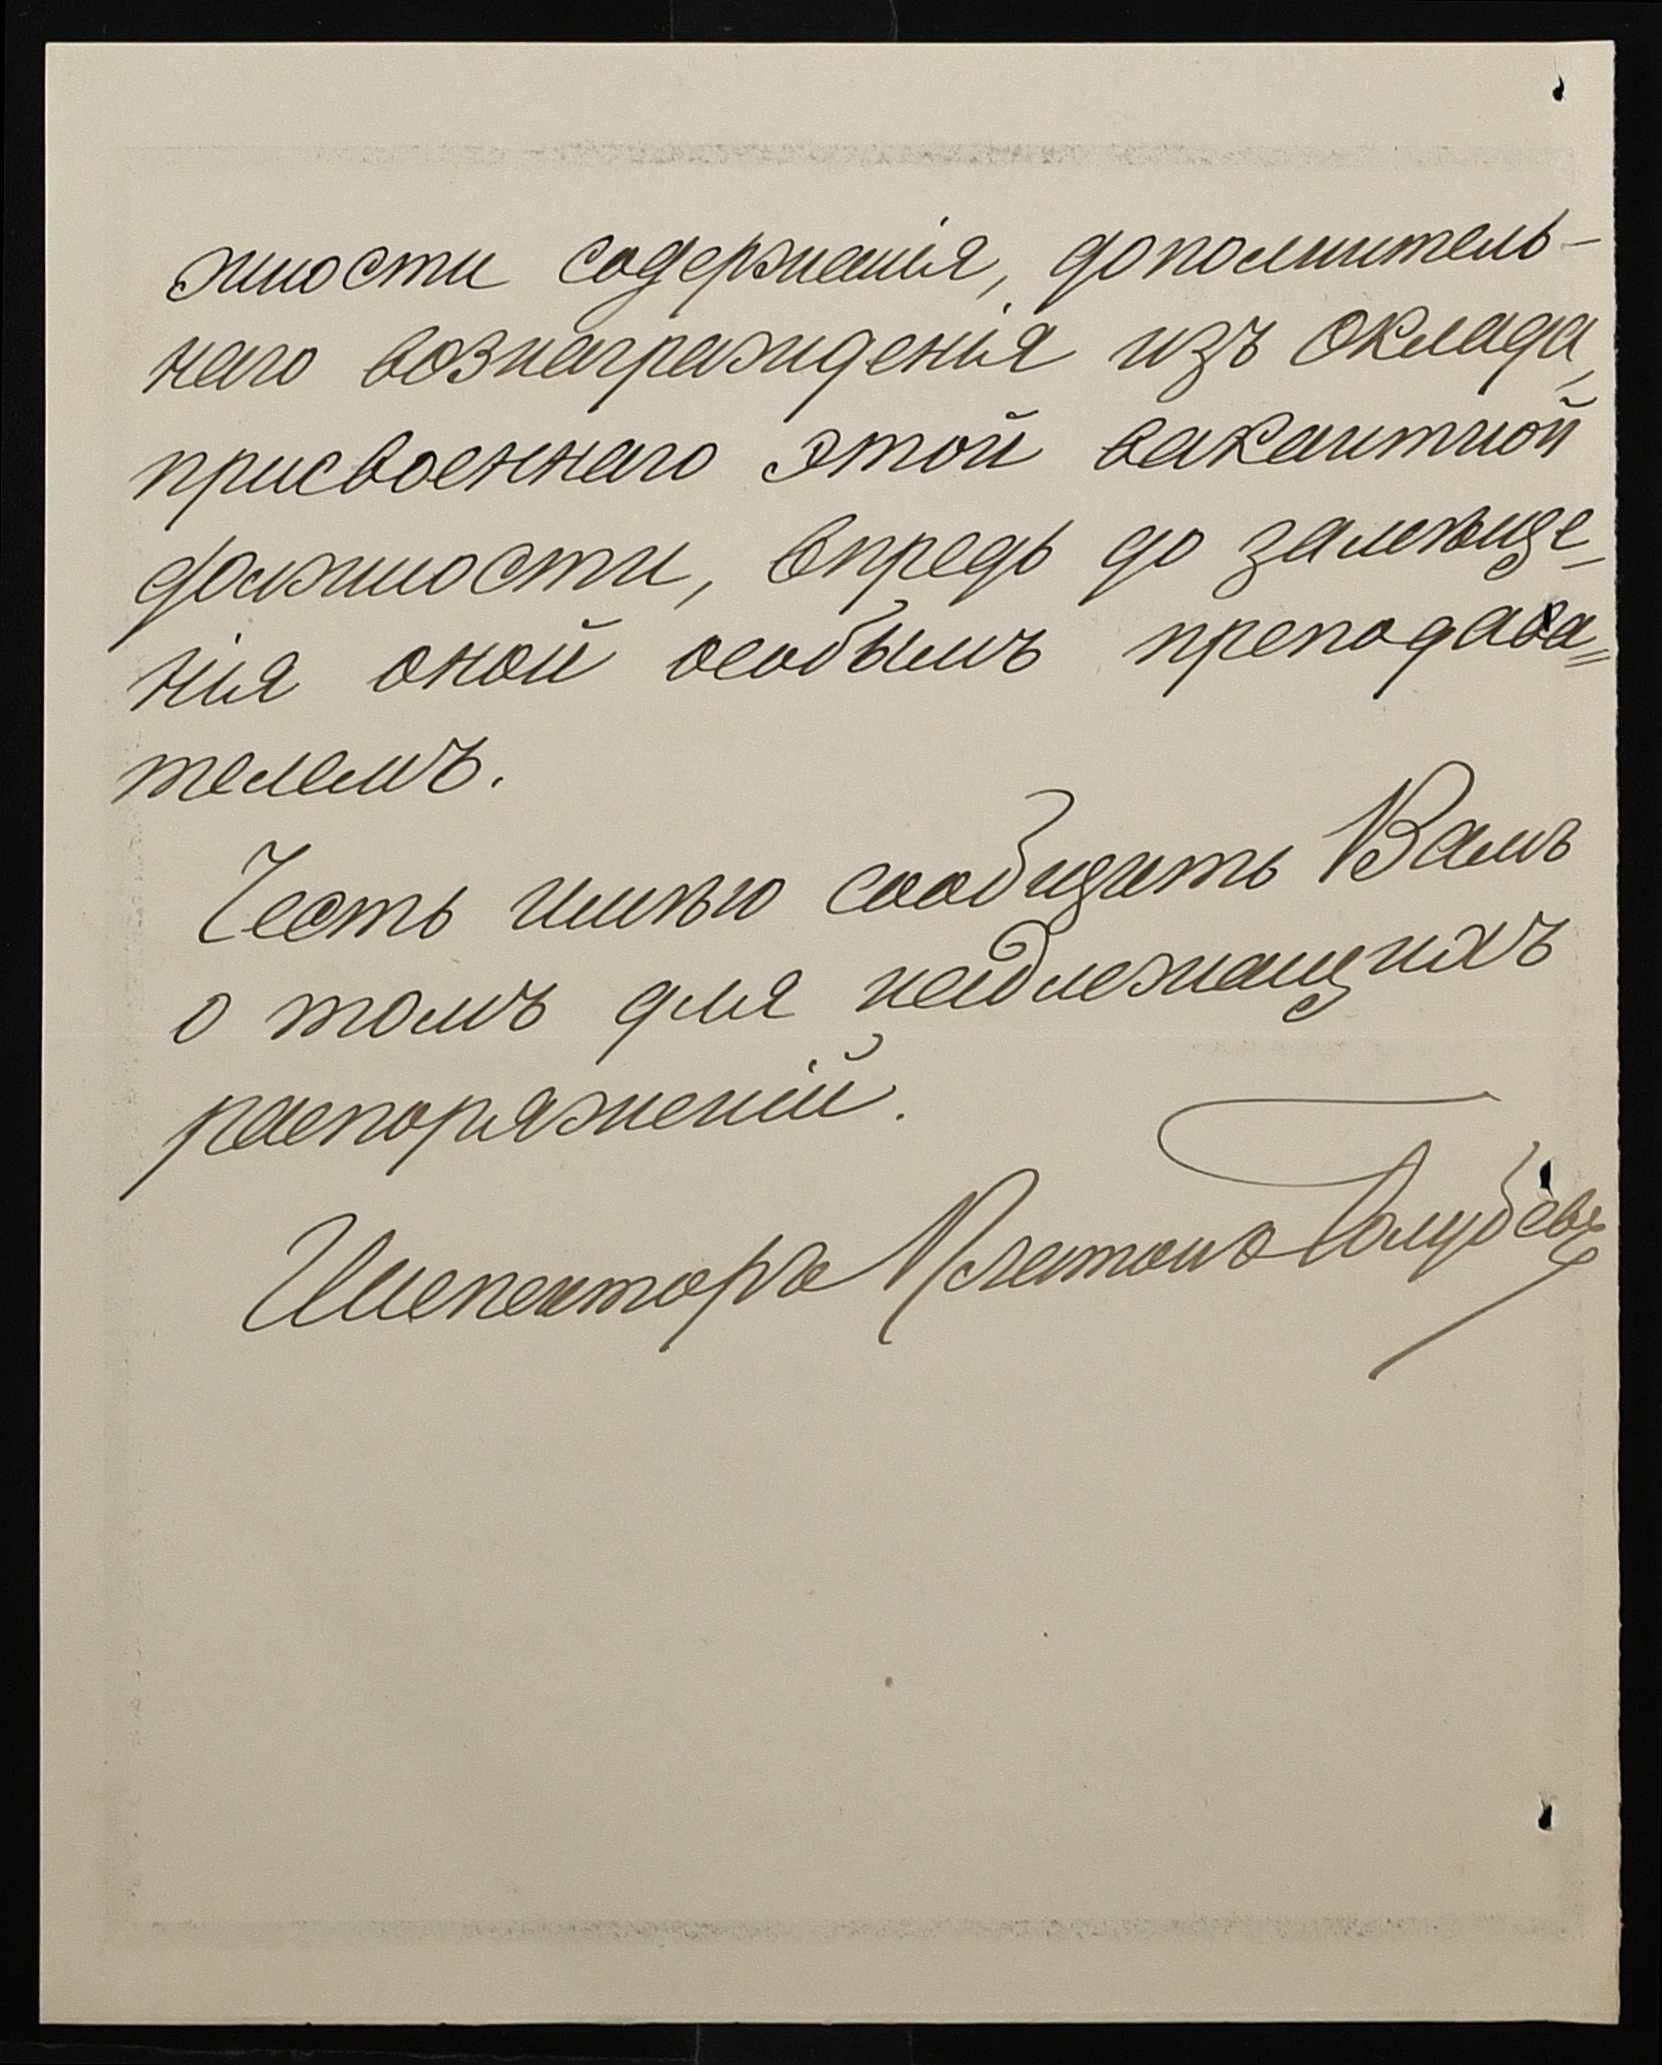 жности содержанія, дополнитель-
наго вознагражденія изъ оклада,
присвоеннаго этой вакантной
должности, впредь до замѣще-
нія оной особымъ преподава=
телемъ.
Честь имѣю сообщить Вамъ
о томъ для надлежащихъ
распоряженій.
Инспекторъ Платонъ Голубевъ